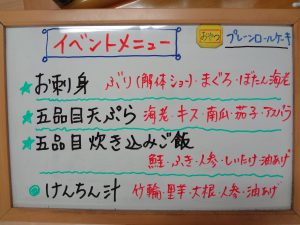 イベントメニュー
おやつ
プレーンロールケーキ
★お刺身 ぶり(解体ショー)・まぐろ・ぼたん海老
★五品目天ぷら 海老・キス・南瓜・茄子・アスパラ
★五品目炊き込みご飯
鮭・ふき・人参・しいたけ・油あげ
◎けんちん汁 竹輪・里芋・大根・人参・油あげ